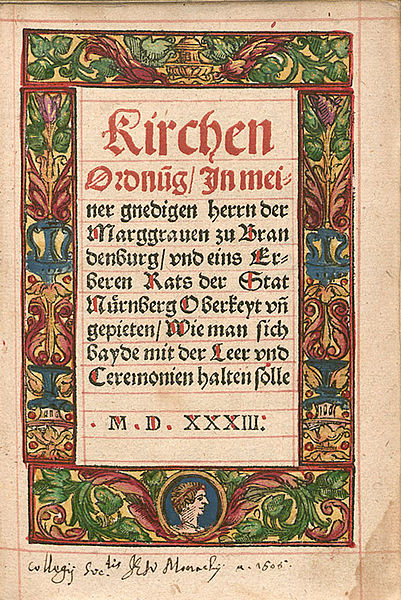 Kirchen
Ordnũg/ In mei-
ner gnedigen herrn der
Marggrauen zu Bran
denburg/ vnd eins Er-
beren Rats der Stat
Nürnberg Oberkeyt vñ
gepieten/ Wie man sich
bayde mit der Leer vnd
Ceremonien halten solle
. M. D. XXXIII:
Collegij Soc.tis Monachij a. 1606.